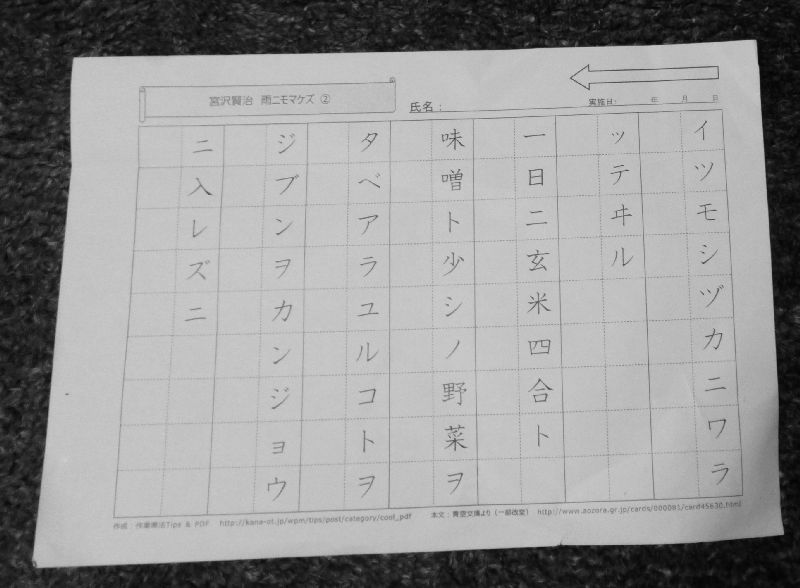 宮沢賢治 雨ニモマケズ ②
氏名：
実施日： 年 月 日
イツモシヅカニワラ
ッテヰル
一日ニ玄米四合ト
味噌ト少シノ野菜ヲ
タベアラユルコトヲ
ジブンヲカンジョウ
ニ入レズニ
作成：作業療法Tips & PDF http://kana-ot.jp/wpm/tips/post/category/cool_pdf
本文：青空文庫より（一部改変） http://www.aozora.gr.jp/cards/000081/card45630.html